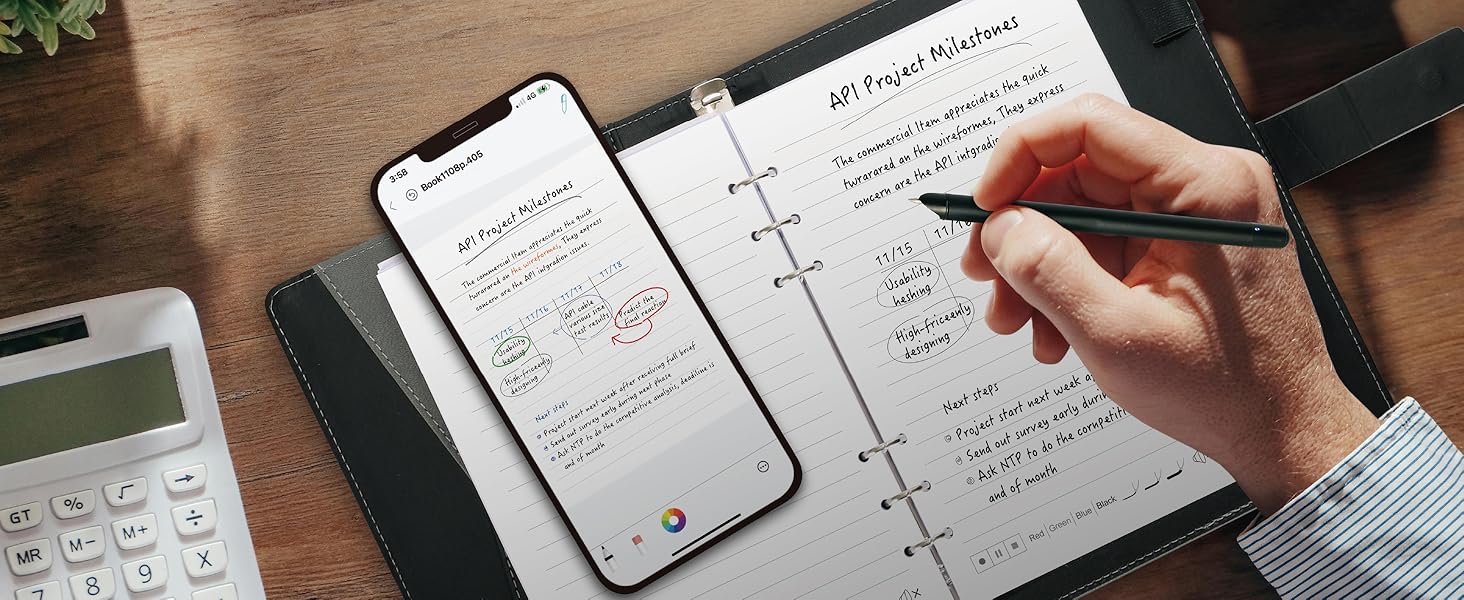 3:58
4G
Book1108p.405
API Project Milestones
The commercial Item appreciates the quick
twrarared an the wireformes, They express
concern are the API intgradion issues.
11/15
11/16
11/17
11/18
Usability
heshing
High-friceently
designing
API cable
various size
test results
Predict the
final reaction
Next steps
Project start next week after receiving full brief
Send out survey early during next phase
Ask NTP to do the cornpetitive analysis, deadline is
and of month
API Project Milestones
The commercial Item appreciates the quick
twrarared an the wireformes, They express
concern are the API intgradio
11/15
11/16
Usability
heshing
High-friceently
designing
Next steps
Project start next week a
Send out survey early durin
Ask NTP to do the cornpetiti
and of month
Red Green Blue Black
GT % √ →
MR M- M+ ÷
7 8 9 X